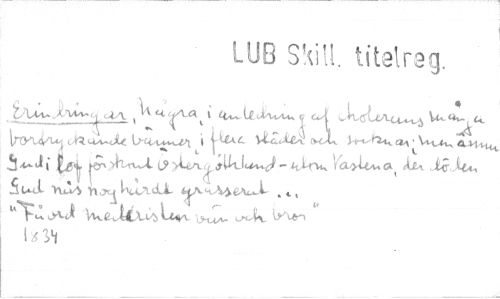 LUB Skill. titelreg.
Erindringar, Några, i anledning af cholerans många
bortryckande vänner, i flera städer och socknar; men ännu
Gudi lof förskont Östergöttland - utom Vastena, der döden
Gud nås nog hårdt grasserat ...
"Få ord med vän och bror"
1834